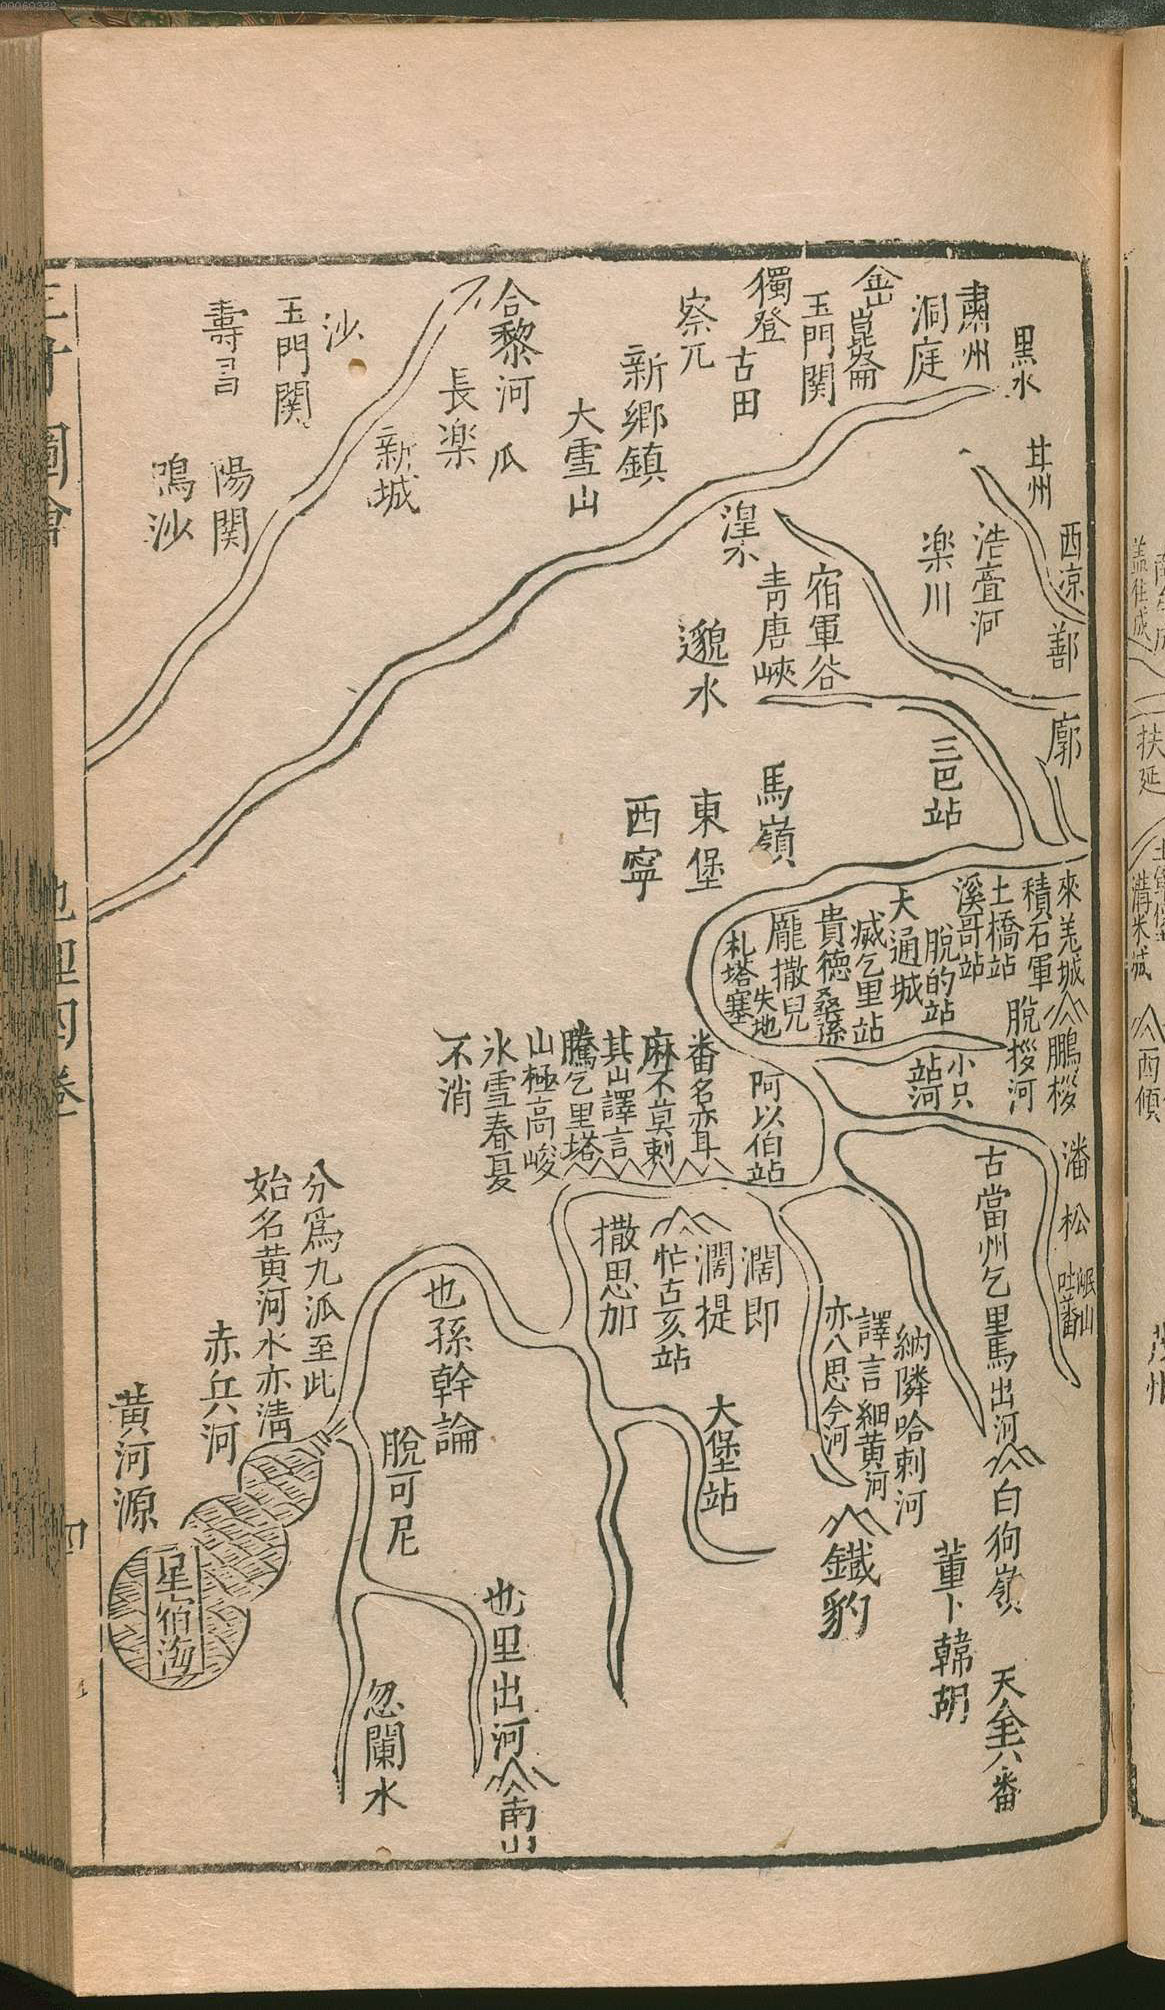 00060322
黒水
肅州
洞庭
崑崙
玉門関
獨登
古田
察兀
新郷鎮
大雪山
合黎河
瓜
長楽
新城
沙
玉門関
壽昌
陽関
鳴沙
甘州
西凉
鄯
廓
浩亹河
楽川
三巴站
湟水
宿軍谷
青唐峽
邈水
馬嶺
東堡
西寧
來羌城
鵬拶
積石軍
脫拶河
土橋站
溪哥站
小只
站河
脫的站
大通城
㓕乞里站
貴德
龎撒兒
失地
札塔塞
阿以伯站
番名亦耳
麻不莫剌
其山譯言
騰乞里塔
山極高峻
氷雪春夏
不消
潘
松
岷山
吐蕃
古當州乞里馬出河
白狗嶺
天全六番
董卜韓胡
納隣哈剌河
譯言細黄河
亦八思今河
鐵豹
濶即
濶提
忙古亥站
撒思加
大堡站
也孫幹論
脫可尼
也里出河
南山
忽闌水
分爲九派至此
始名黄河水亦淸
赤兵河
黄河源
星宿海
三才圖會
地理四卷
四
扶延
茂州